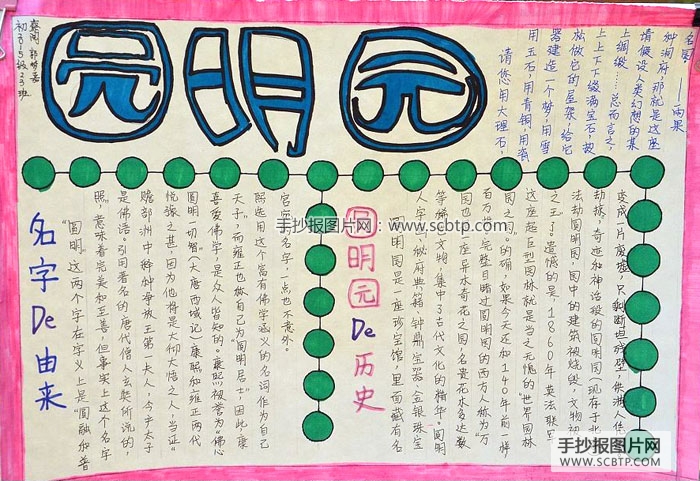 圆明园
请您用大理石,
用玉石,用青铜,用瓷
器建造一个梦,用雪
松做它的屋架,给它
上上下下缀满宝石,披
上绸缎……总而言之,
请假设人类幻想的某
种洞府,那就是这座
名园
——雨果
名字De由来
“圆明”这两个字在字义上是“圆融和普
照”,意味着完美和至善,但事实上这个名字
是佛语。引用著名的唐代僧人玄奘所说的,
赡部洲中释种净饭王第一夫人,今产太子
悦豫之甚,因为他将是大彻大悟之人,当证“
圆明一切智”(大唐西域记)康熙和雍正两代
喜爱佛学,是众人皆知的。康熙被誉为“佛心
天子”,而雍正也称自己为“圆明居士”,因此,康
熙选用这个富有佛学涵义的名词作为自己
名字,一点也不意外。
圆明园De历史
圆明园是一座珍宝馆,里面藏有名
人字 秘府典籍、钟鼎宝器、金银珠宝
等稀 文物,集中了古代文化的精华。圆明
园也 座异木奇花之园,名贵花木多达数
百万 完整目睹过圆明园的西方人称为“万
园之园”。的确,如果今天还和140年前一样
这座超巨型园林就是当之无愧的“世界园林
之王”了。遗憾的是,1860年英法联军
法劫圆明园,园中的建筑被烧毁,文物被
劫掠,奇迹和神话般的圆明园,现存于北
变成一片废墟,只剩断垣残壁,供游人凭
手抄报图片网:www.scbtp.com
手抄报图片网
WWW.SCBTP.COM